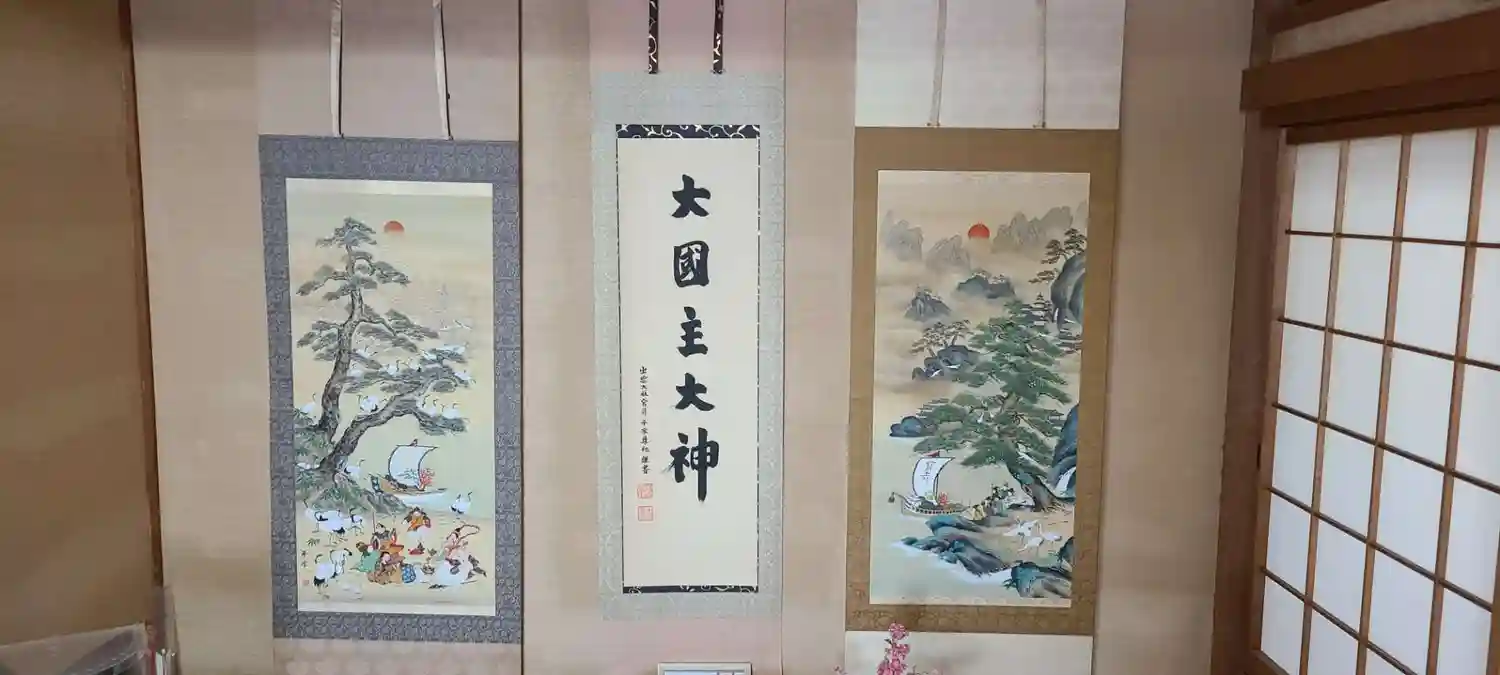 大國主大神
出雲大社宮司千家尊祀謹書